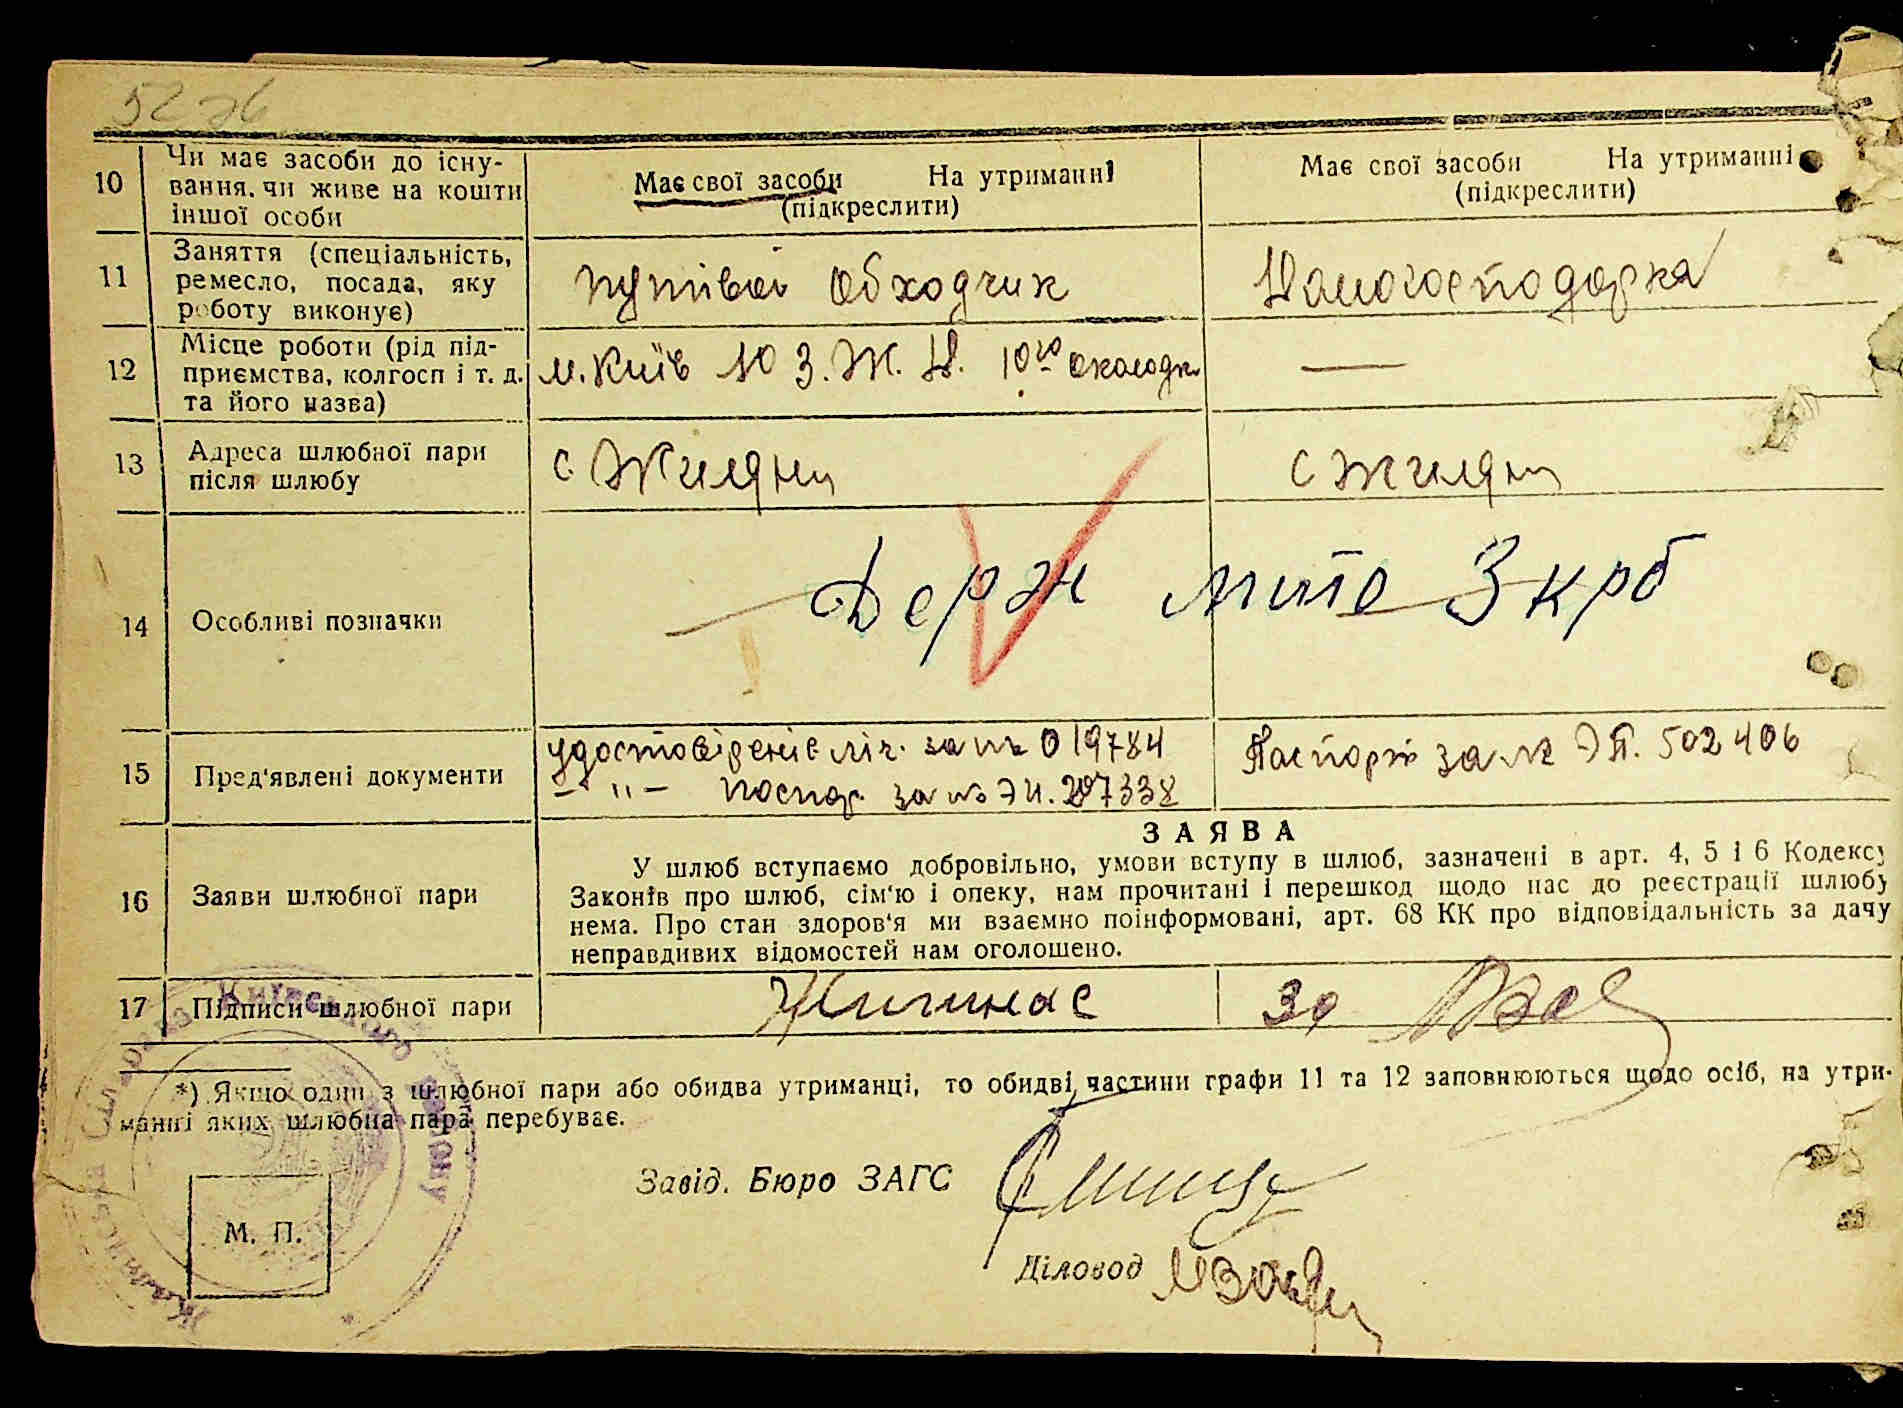 52 зв
10
Чи має засоби до існу-
вання, чи живе на кошти
іншої особи
Має свої засоби На утриманні
(підкреслити)
Має свої засоби На утриманні
(підкреслити)
11
Заняття (спеціальність,
ремесло, посада, яку
роботу виконує)
путівой обходчик
Домогосподарка
12
Місце роботи (рід під-
приємства, колгосп і т. д.
та його назва)
м. Київ Ю З. Ж. Д. 10го околодк
—
13
Адреса шлюбної пари
після шлюбу
с. Жиляни
с Жиляни
14
Особливі позначки
Держ мито 3 крб
15
Пред'явлені документи
удостовіреніє ліч. за № 019784
— " — поспор. за № ЭИ. 297338
Паспорт за № ЭП. 502406
16
Заяви шлюбної пари
ЗАЯВА
У шлюб вступаємо добровільно, умови вступу в шлюб, зазначені в арт. 4, 5 і 6 Кодексу
Законів про шлюб, сім'ю і опеку, нам прочитані і перешкод щодо нас до реєстрації шлюбу
нема. Про стан здоров'я ми взаємно поінформовані, арт. 68 КК про відповідальність за дачу
неправдивих відомостей нам оголошено.
17
Підписи шлюбної пари
За
*) Якщо один з шлюбної пари або обидва утриманці, то обидві частини графи 11 та 12 заповнюються щодо осіб, на утри-
манні яких шлюбна пара перебуває.
Завід. Бюро ЗАГС
Діловод
М. П.
Київського району